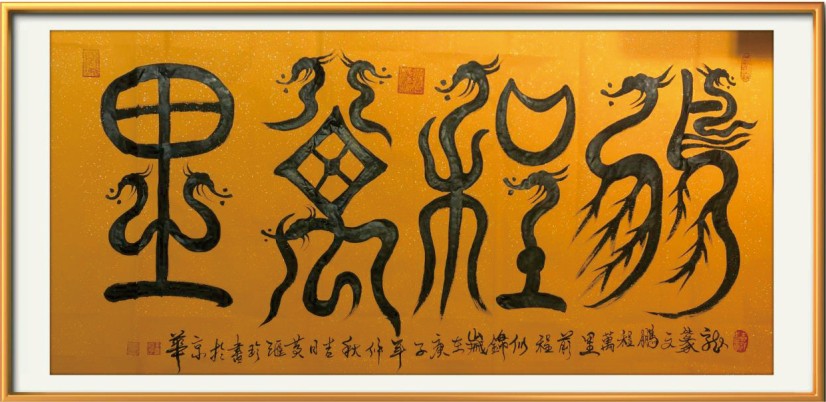 鵬程萬里
龍篆文鵬程萬里前程似錦歲在庚子年仲秋吉日黃滙珍書於京華